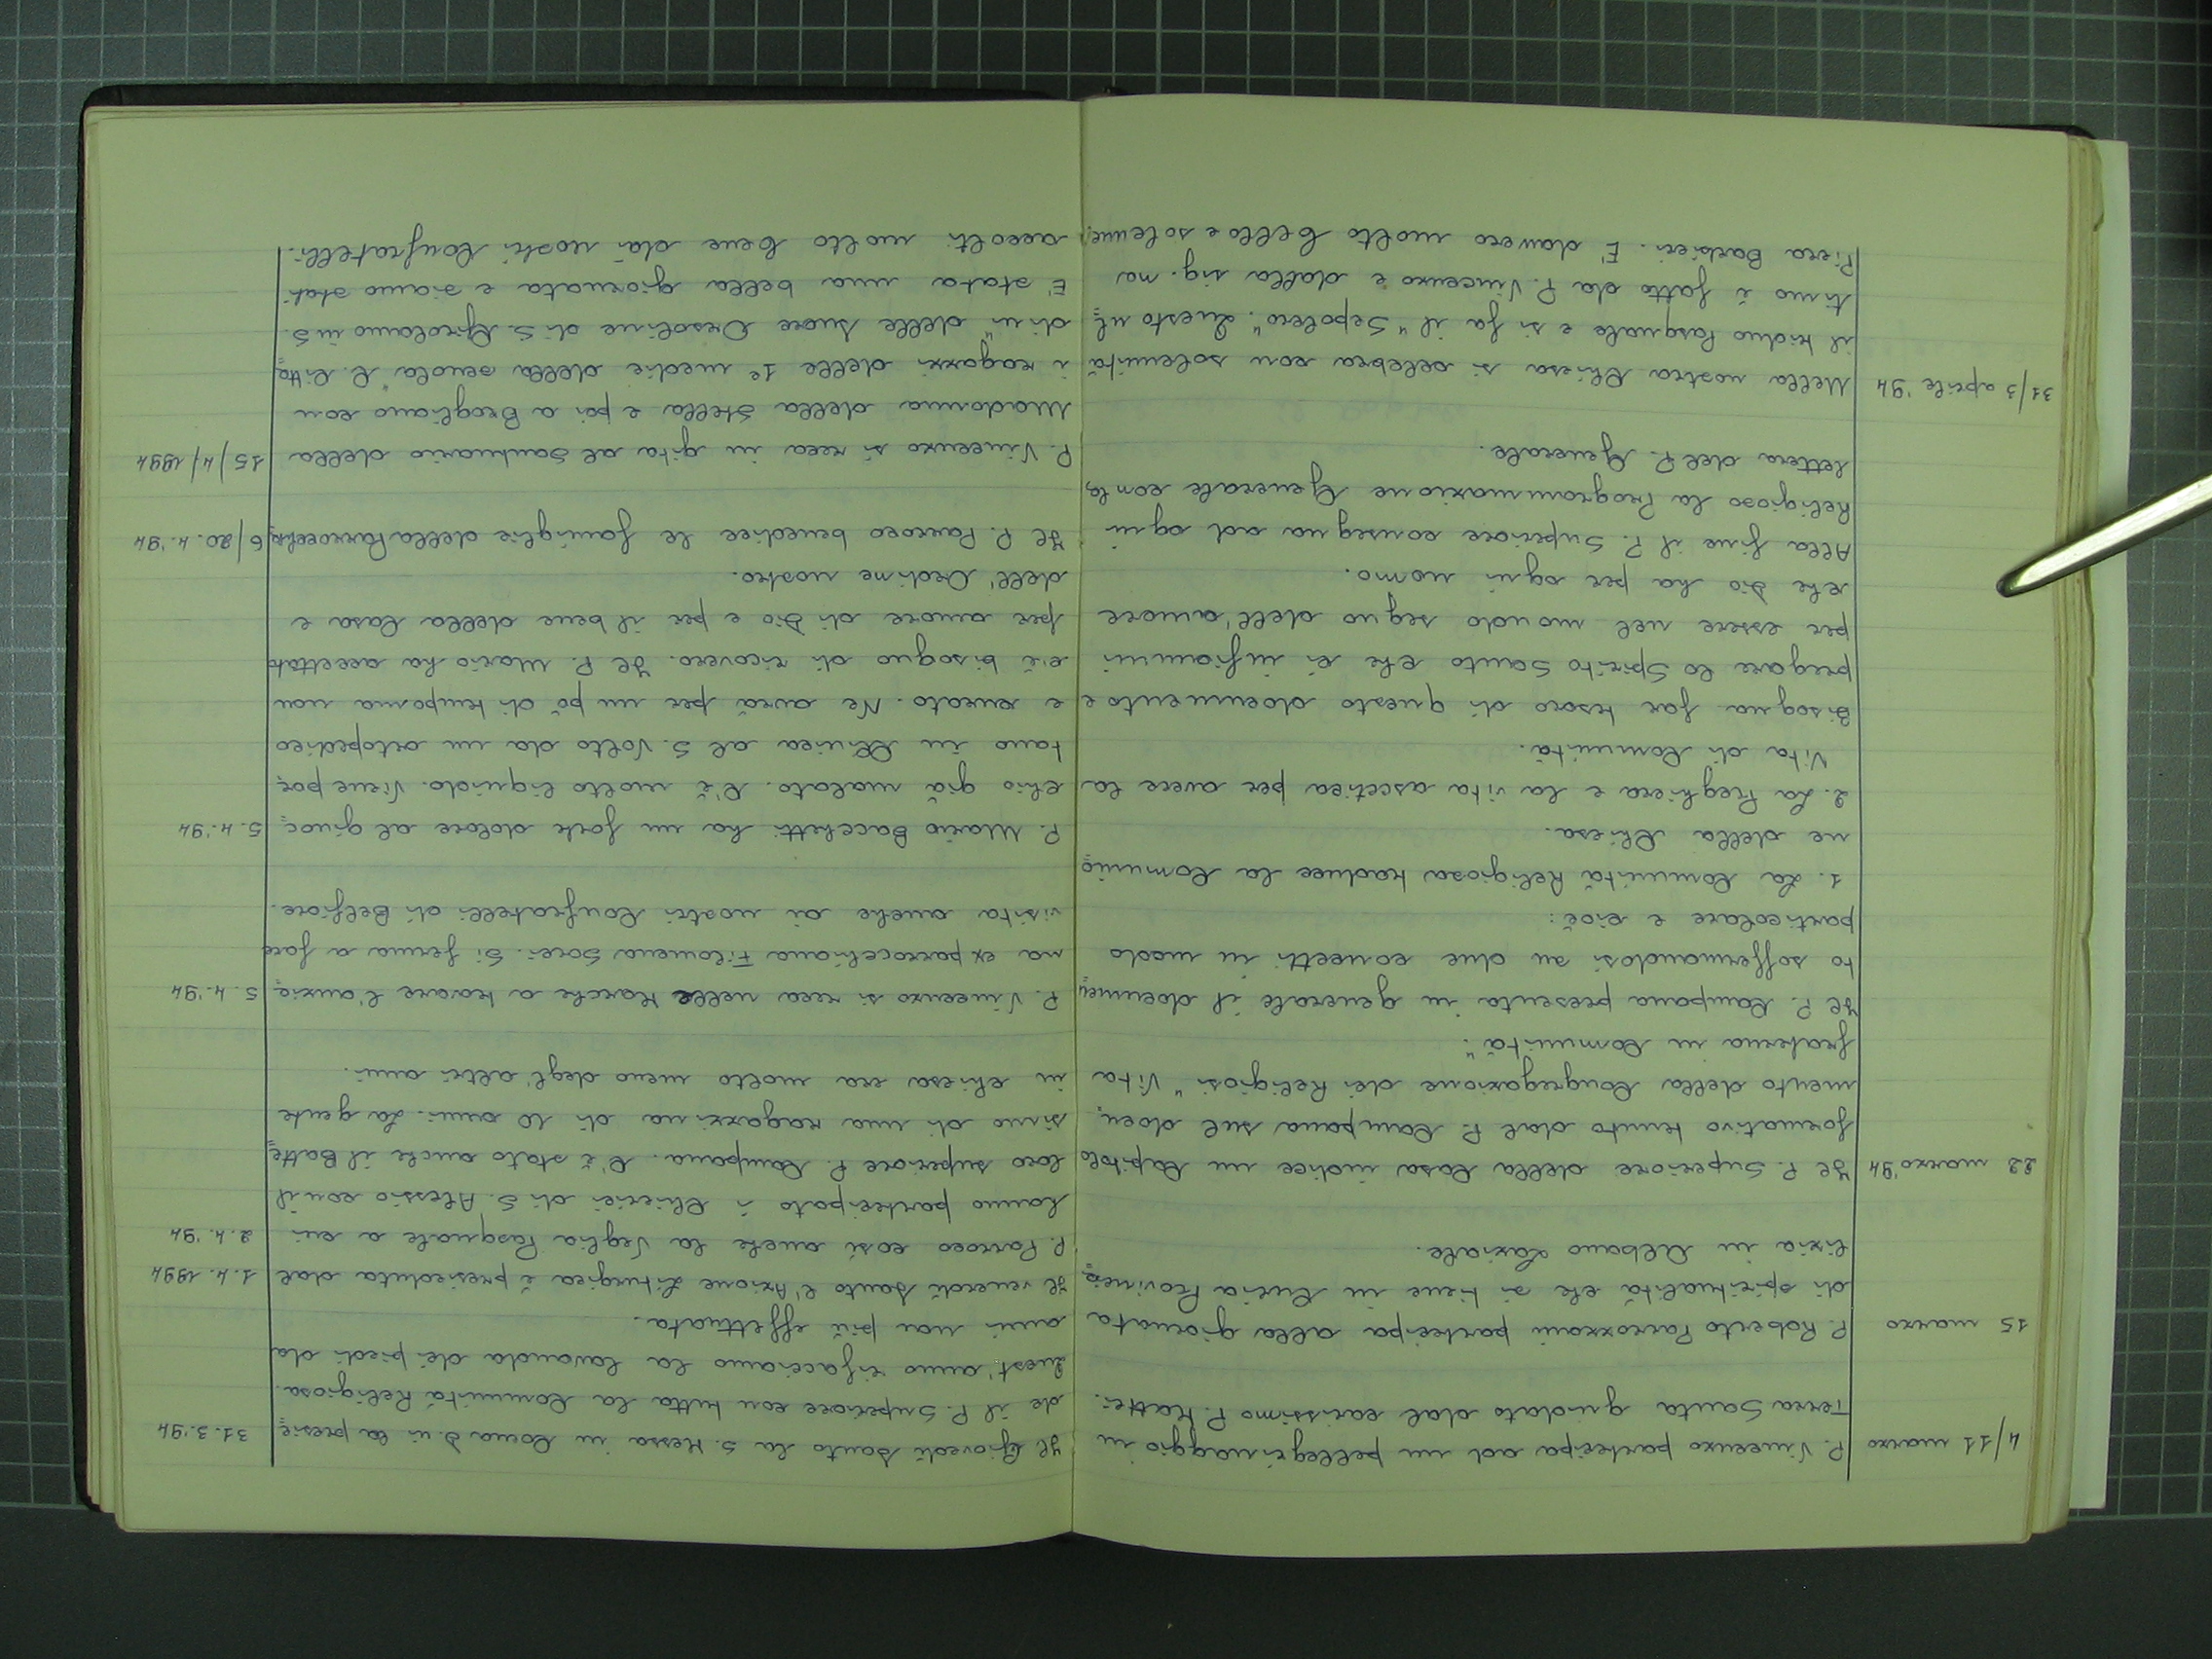 4/11 marzo P. Vincenzo partecipa ad un pellegrinaggio in
Terra Santa guidato dal carissimo P. Mattei.
15 marzo P. Roberto Parrozzani partecipa alla giornata
di spiritualità che si tiene in Curia Provinci=
lizia in Albano Laziale.
22 marzo '94 Il P. Superiore della Casa indice un Capitolo
formativo tenuto dal P. Campana sul docu=
mento della Congregazione dei Religiosi "Vita
fraterna in Comunità".
Il P. Campana presenta in generale il documen=
to soffermandosi su due concetti in modo
particolare e cioè:
1. La Comunità Religiosa traduce la Comunio=
ne della Chiesa.
2. La Preghiera e la vita ascetica per avere la
Vita di Comunità.
Bisogna far tesoro di questo documento e
pregare lo Spirito Santo che ci infiammi
per essere nel mondo segno dell'amore
che Dio ha per ogni uomo.
Alla fine il P. Superiore consegna ad ogni
Religioso la Programmazione Generale con la
lettera del P. Generale.
31/3 aprile '94 Nella nostra Chiesa si celebra con solennità
il triduo Pasquale e si fa il "Sepolcro". Questo ul=
timo è fatto da P. Vincenzo e dalla sig.na
Piera Barbieri. E' davvero molto bello e solenne.
Il Giovedì Santo la S. Messa in Coena D.ni la presie= 31.3.'94
de il P. Superiore con tutta la Comunità Religiosa.
Quest'anno rifacciamo la lavanda dei piedi da
anni non più effettuata.
Il venerdì Santo l'Azione Liturgica è presieduta dal 1.4.1994
P. Parroco così anche la Veglia Pasquale a cui 2.4.'94
hanno partecipato i Chierici di S. Alessio con il
loro superiore P. Campana. C'è stato anche il Batte=
simo di una ragazzina di 10 anni. La gente
in chiesa era molto meno degl'altri anni.
P. Vincenzo si reca nelle Marche a trovare l'anzia= 5.4.'94
na ex parrocchiana Filomena Sorci. Si ferma a fare
visita anche ai nostri Confratelli di Belfiore.
P. Mario Bacchetti ha un forte dolore al ginoc= 5.4.'94
chio già malato. C'è molto liquido. Viene por=
tano in Clinica al S. Volto da un ortopedico
e curato. Ne avrà per un pò di tempo ma non
c'è bisogno di ricovero. Il P. Mario ha accettato
per amore di Dio e per il bene della Casa e
dell'Ordine nostro.
Il P. Parroco benedice le famiglie della Parrocchia 6/20.4.'94
P. Vincenzo si reca in gita al Santuario della 15/4/1994
Madonna della Stella e poi a Brogliano con
i ragazzi delle 1e medie della scuola "C. Citta=
dini" delle Suore Orsoline di S. Girolamo in S.
E' stata una bella giornata e siamo stati
accolti molto bene dai nostri Confratelli.